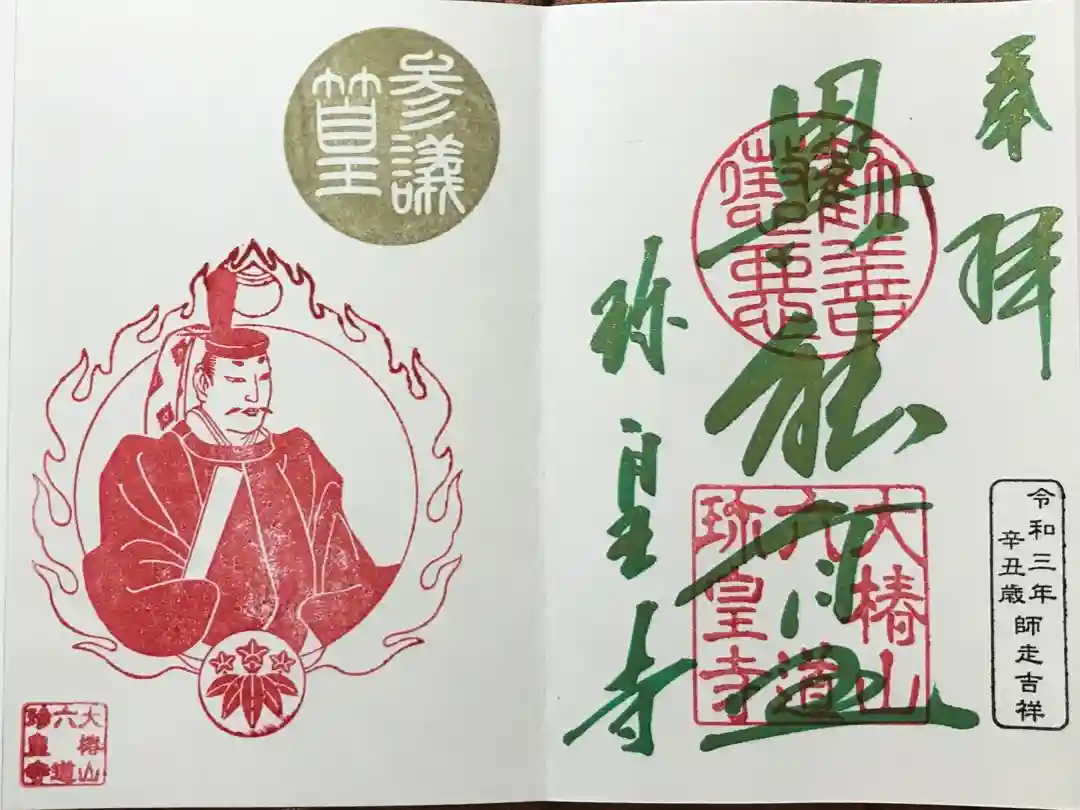 奉拝
令和三年
辛丑歳
師走吉祥
勸善
懲惡
大椿山
六道
珎皇寺
珎皇寺
参議
篁
大椿山
六道
珎皇寺